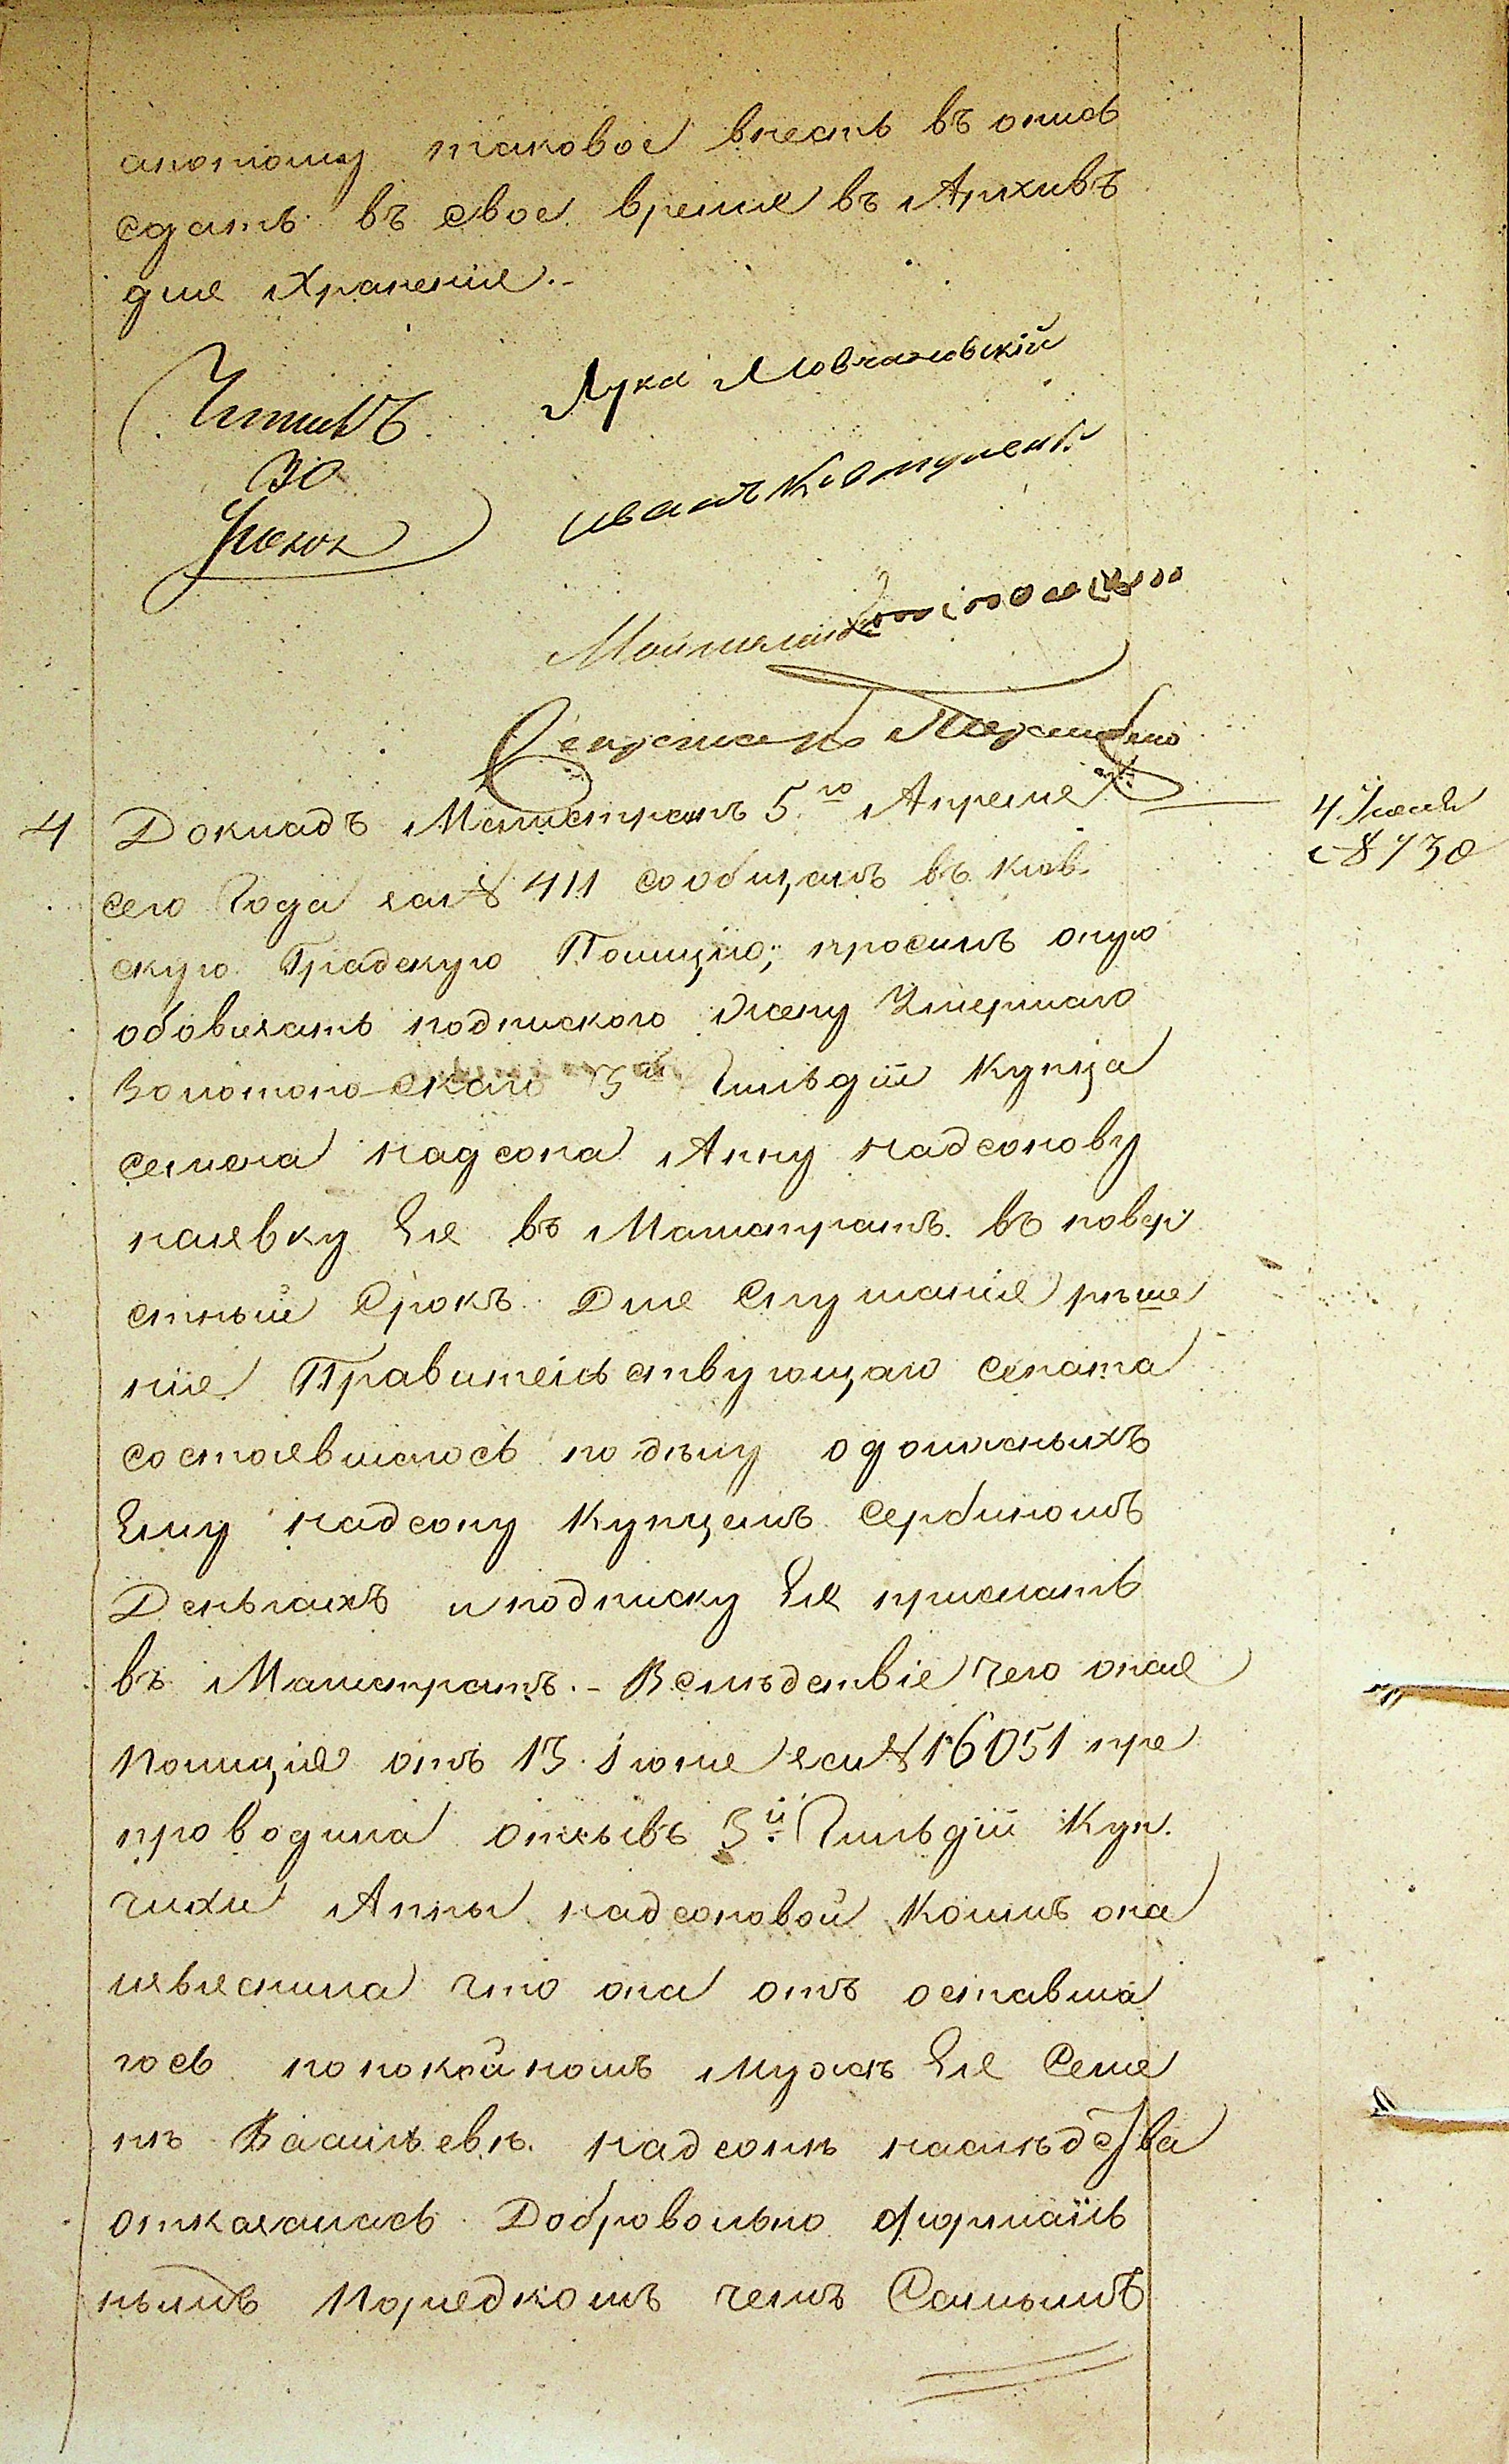 апотому таковое внесть въ опись
сдать въ свое время въ Архивъ
для Храненія.-
Читалъ
30
Іюня
Лука Мовчановскій
Иванъ
Секретарь
4 Докладъ Магистратъ 5го Апреля
4 Іюля
№ 730
сего Года за № 411 сообщалъ въ Кіев
скую Градскую Полицію; просилъ оную
обовязать подпискою Жену Умершаго
Золотоношскаго 3й Гильдіи Купца
Семена надсона Анну надсонову
наявку Ея въ Магистратъ въ повер
стный Срокъ Для Слушанія рѣше
нія Правительствующаго Сената
состоявшагося подѣлу одолженныхъ
Ему надсону Купцемъ Сербиномъ
Деньгахъ иподписку Ея прислать
въ Магистратъ.- Вслѣдствіе Чего оная
Полиція отъ 13 Іюня за № 16051 пре
проводила отзывъ 3й Гильдіи Куп.
чихи Анны надсоновой Коимъ она
изъяснила что она отъ оставша
гось попокойномъ Мужѣ Ея Семе
нѣ Васильевѣ надсонѣ наслѣдства
отказалась Добровольно формаль
нымъ Порядкомъ чемъ Самымъ